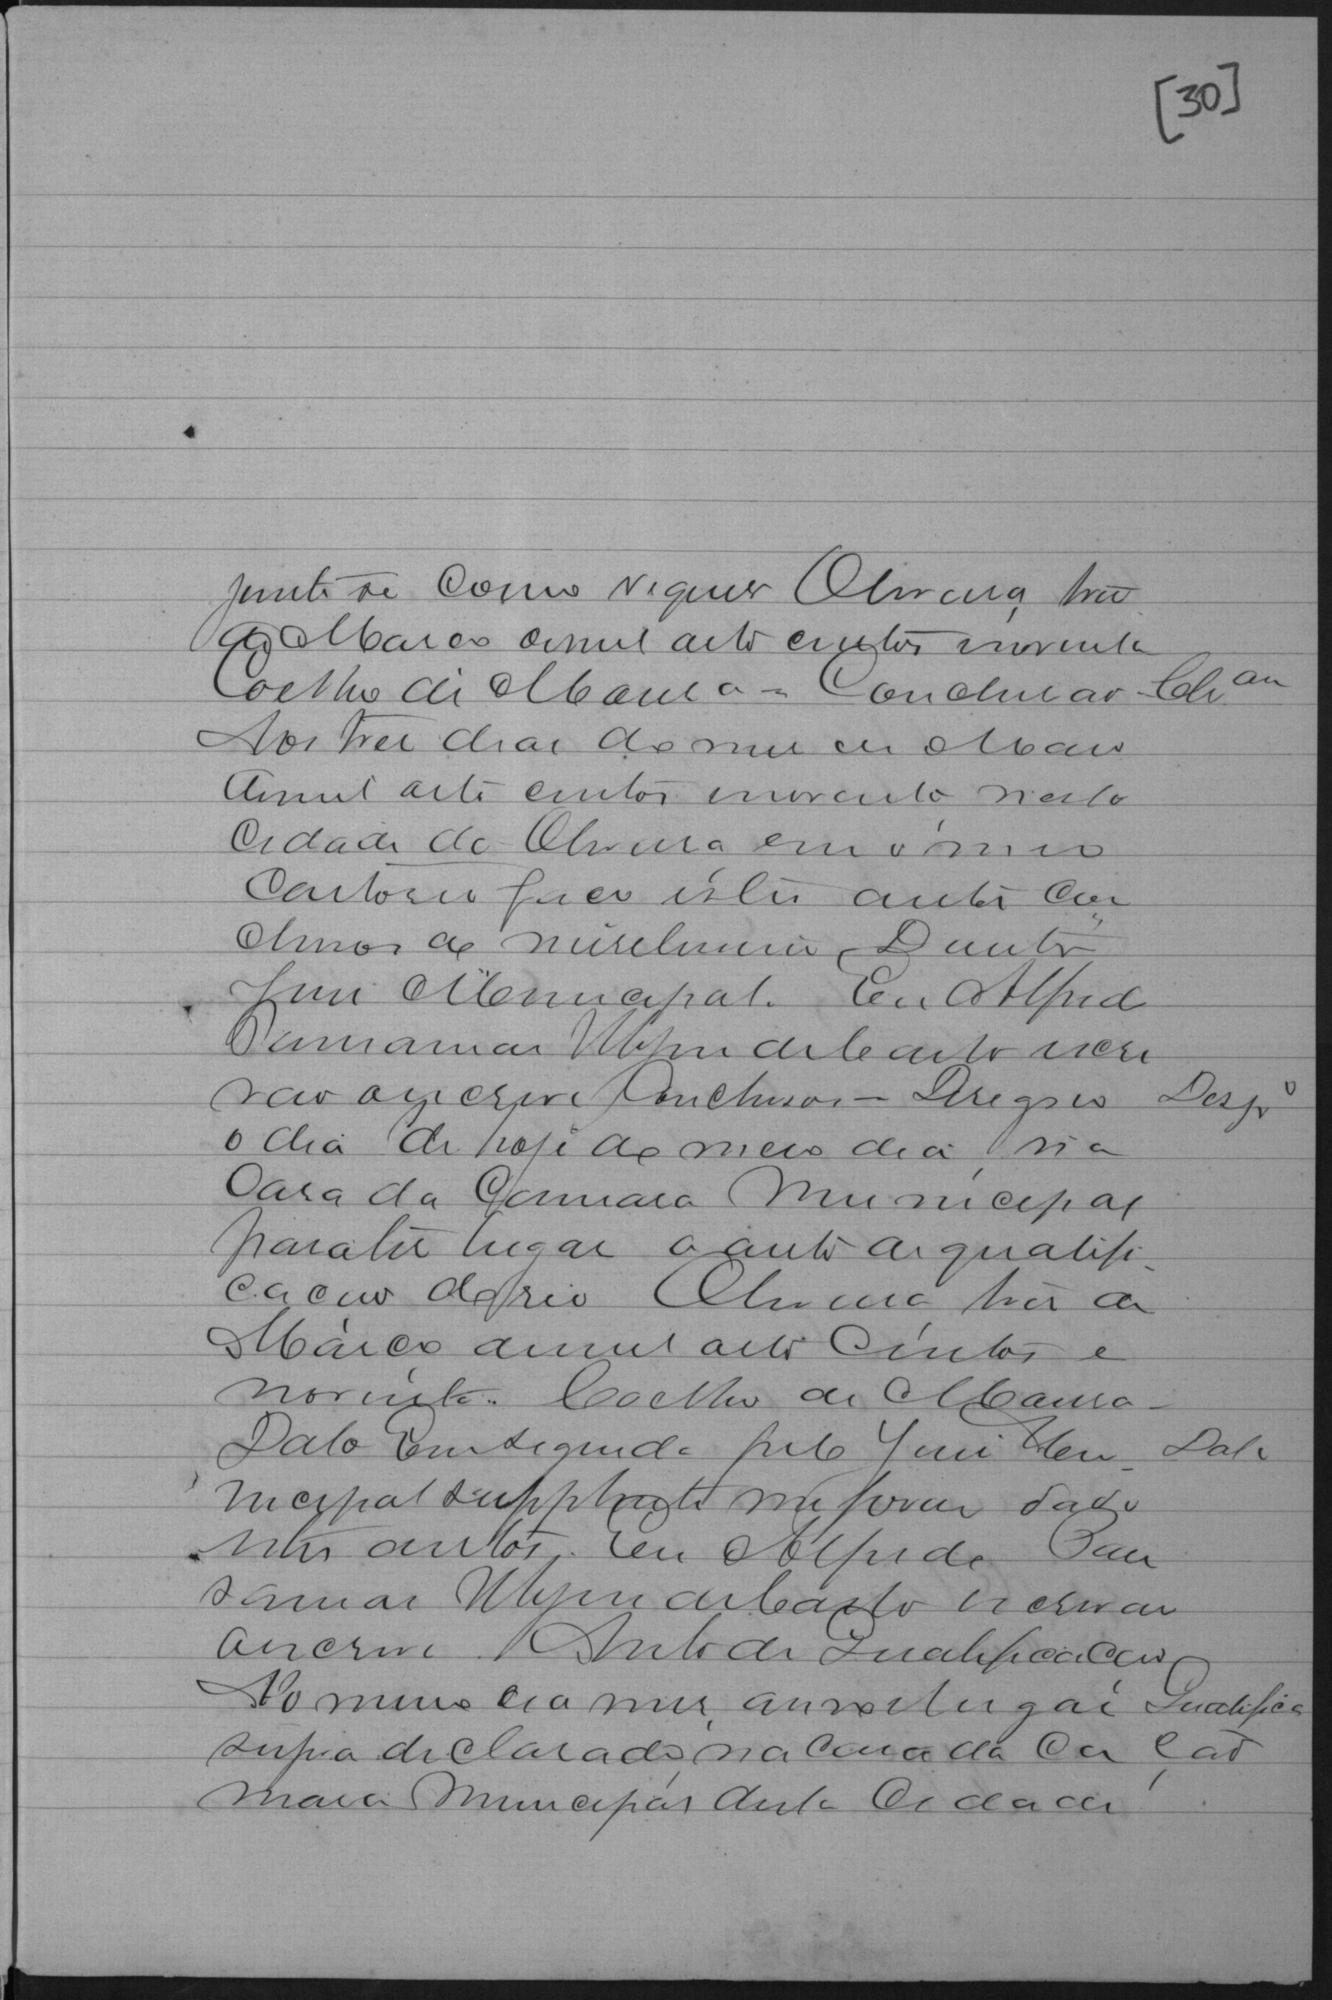 [30]
junte se Como requer Oliveira, tres
de Março de mil oito centos e noventa
Coelho de Moura = Conclusão Cls.am
Aos tres dias do mes de Março
de mil oito centos e noventa nesta
Cidade de Oliveira em o meu
Cartorio faço estes autos con
clusos ao meretissimo Doutor
Juis Municipal. Eu Alfredo
de Castro escri
vão o escrevi Conclusos = Designo Despo
o dia de hoje ao meio dia, na
Casa da Camara Municipal
para ter lugar o auto de qualifi
cação do reo Oliveira, tres de
Março de mil oito Centos e
noventa. Coelho de Moura =
Data Em seguida pelo Juis Mu Data
nicipal supplente me forão dado
estes autos. Eu Alfredo
de Castro escrivão
o escrevi. Auto de Qualificação
No mesmo dia mes, anno e lugar Qualifica
supra declarado, na Casa da Ca ção
mara Municipal desta Cidade